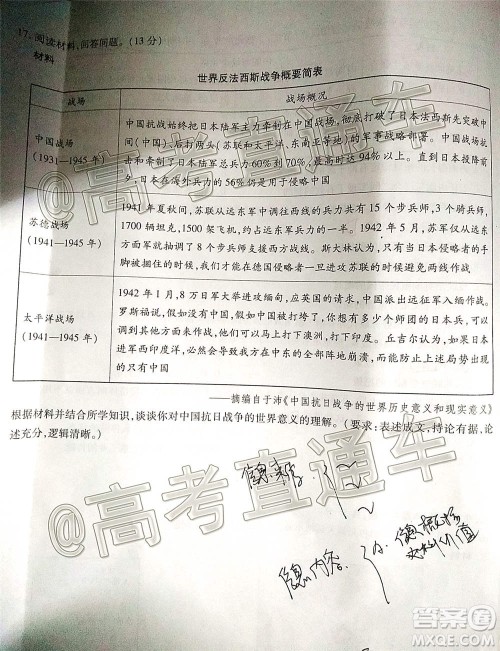 17. 阅读材料,回答问题。(13 分)
材料
世界反法西斯战争概要简表
战场
战场概况
中国战场
(1931—1945 年)
中国抗战始终把日本陆军主力牵制在中国战场,彻底打破了日本法西斯先突破中
间(中国)、后打两头(苏联和太平洋、东南亚等地)的军事战略部署。中国战场抗
击和牵制了日本陆军总兵力 60% 到 70%,最高时达 94% 以上。直到日本投降前
夕,日本在海外兵力的 56% 仍是用于侵略中国
苏德战场
(1941—1945 年)
1941 年夏秋间,苏联从远东军中调往西线的兵力共有 15 个步兵师,3 个骑兵师,
1700 辆坦克,1500 架飞机,约占远东军兵力的一半。1942 年 5 月,苏军仅从远东
方面军就抽调了 8 个步兵师支援西方战线。斯大林认为,只有当日本侵略者的手
脚被捆住的时候,我们才能在德国侵略者一旦进攻苏联的时候避免两线作战
太平洋战场
(1941—1945 年)
1942 年 1 月,8 万日军大举进攻缅甸,应英国的请求,中国派出远征军入缅作战。
罗斯福说,假如没有中国,假如中国被打垮了,你想,有多少个师团的日本兵,可以
调到其他方面作战,他们可以马上打下澳洲,打下印度。丘吉尔认为,如果日本
进军西印度洋,必然会导致我方在中东的全部阵地崩溃,而能防止上述局势的
只有中国
——摘编自于沛《中国抗日战争的世界历史意义和现实意义》
根据材料并结合所学知识,谈谈你对中国抗日战争的世界意义的理解。(要求:表述成文,持论有据,论
述充分,逻辑清晰。)
@高考直通车
@高考直通车
@高考直通车
答案圈
MXQE.COM